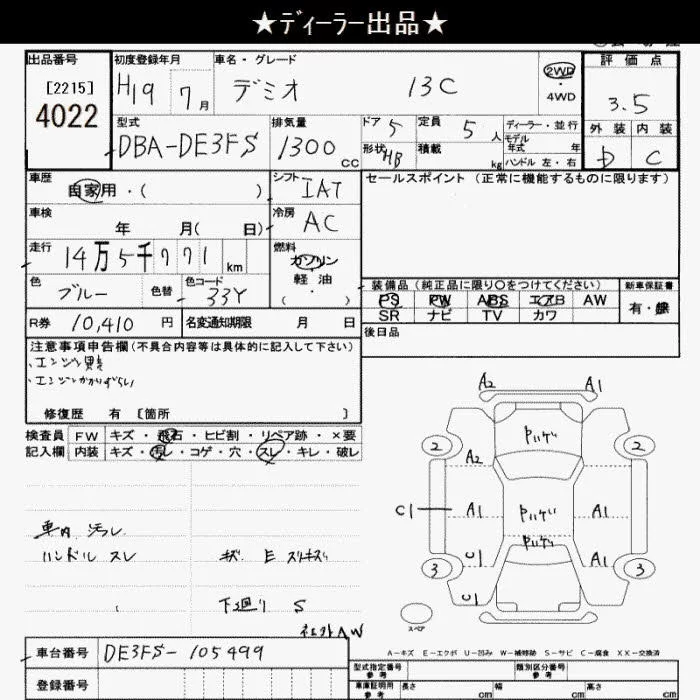 ★ディーラー出品★
出品番号 初度登録年月 車名・グレード 評価点
[2215] H19 7月 デミオ 13C 2WD・4WD 3.5
4022 型式 排気量 ドア 5 定員 5人 ディーラー・並行 外装 内装
DBA-DE3FS 1300cc 形状 HB 積載 kg モデル年式 年 D C
ハンドル 左・右
車歴 自家用・( ) シフト IAT セールスポイント (正常に機能するものに限ります)
車検 年 月( 日) 冷房 AC
走行 14万5千771km 燃料 ガソリン
軽油
( )
色 ブルー 色替 色コード 33Y 装備品(純正品に限り○をつけてください) 新車保証書
PS PW ABS エアB AW 有・無
SR ナビ TV カワ
R券 10,410円 名変通知期限 月 日 後日品
注意事項申告欄(不具合内容等は具体的に記入して下さい)
・エンジン異音
・エンジンかかりずらい
修復歴 有 [箇所 ]
検査員 FW キズ・飛石・ヒビ割・リペア跡・×要
記入欄 内装 キズ・汚レ・コゲ・穴・スレ・キレ・破レ
A2 A1
2 2
A2
C1 A1 A1
C1 A1
3 3
C1
スペア
車内 汚レ
ハンドル スレ キズ E スリキズ
下廻り S
A-キズ E-エクボ U-凹み W-補修跡 S-サビ C-腐食 XX-交換済
車台番号 DE3FS-105499
登録番号
型式指定番号 参考 類別区分番号 参考
車庫証明用 参考 長さ cm 幅 cm 高さ cm